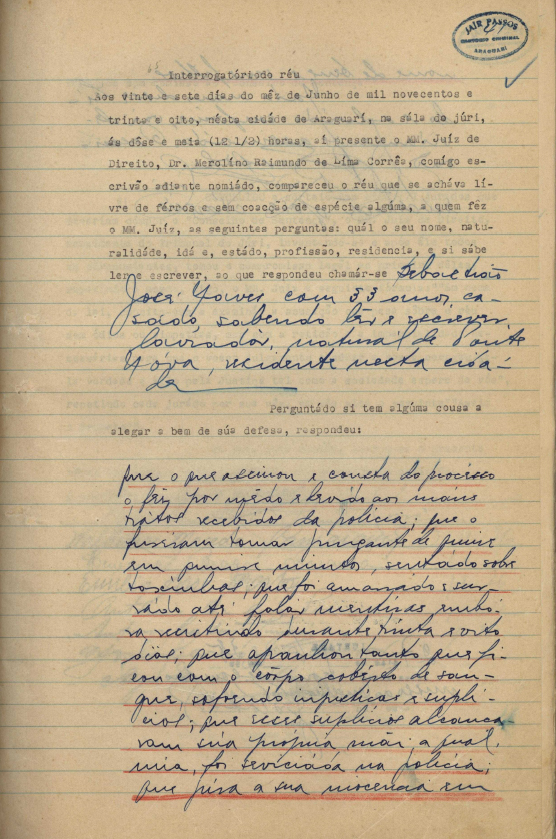 JAIR PASSOS
CARTORIO CRIMINAL
ARAGUARÍ
41
Interrogatóriodo réu
Aos vinte e sete dias do mêz de Junho de mil novecentos e
trinta e oito, nésta cidade de Araguarí, na sála do júri,
ás dôse e meia (12 1/2) horas, aí presente o MM. Juíz de
Direito, Dr. Merolíno Raimundo de Lima Corrêa, comígo es-
crivão adiante nomiádo, compareceu o réu que se acháva lí-
vre de férros e sem coacção de espécie algúma, a quem fêz
o MM. Juíz, as seguintes perguntas: quál o seu nome, natu-
ralidáde, idá e, estádo, profissão, residencia, e si sábe
ler e escrever, ao que respondeu chamár-se Sebastião
José Naves com 33 anos, ca-
sado, sabendo lêr e escrever,
lavrador, natural de Ponte
Nóva, residente nesta cida-
de
Perguntádo si tem algúma cousa a
alegar a bem de súa defesa, respondeu:
que o que assinou e consta do processo
o fêz por mêdo e devido aos máus
tratos recebidos da polícia; que o
fizeram tomar purgante de
em minuto, sentado sobre
que foi amarrado e sur-
rádo até falar mentiras embó-
ra resistindo durante trinta e oito
dias; que apanhou tanto que fi-
cou com o côrpo cobérto de san-
gue, sofrendo injustiças e suplí-
cios; que esses suplícios alcança-
ram súa própria mãi a qual,
foi seviciáda na polícia;
que jura a sua inocencia em